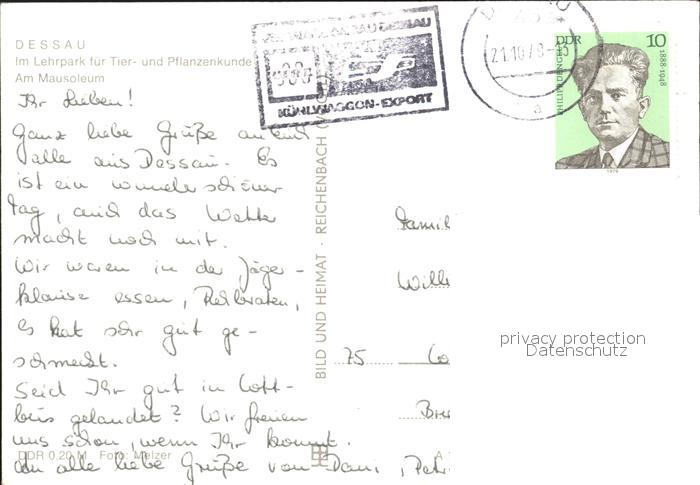 DESSAU
Im Lehrpark für Tier- und Pflanzenkunde
Am Mausoleum
Ihr Lieben!
Ganz liebe Grüße an euch
alle aus Dessau. Es
ist ein wunderschöner
Tag, auch das Wetter
macht noch mit.
Wir waren in der Jäger-
klause essen, Rehbraten,
es hat sehr gut ge-
schmeckt.
Seid Ihr gut in Cott-
bus gelandet? Wir freuen
uns schon, wenn Ihr kommt.
An alle liebe Grüße von Dani, Petr
DDR 0,20 M Foto: Melzer
BILD UND HEIMAT · REICHENBACH (V
KÜHLWAGGON-EXPORT
21.10.79-15
a
DDR
10
PHILIPP DENGEL
1888-1948
1979
Famil
Willi
75 Co
Bru
A
privacy protection
Datenschutz